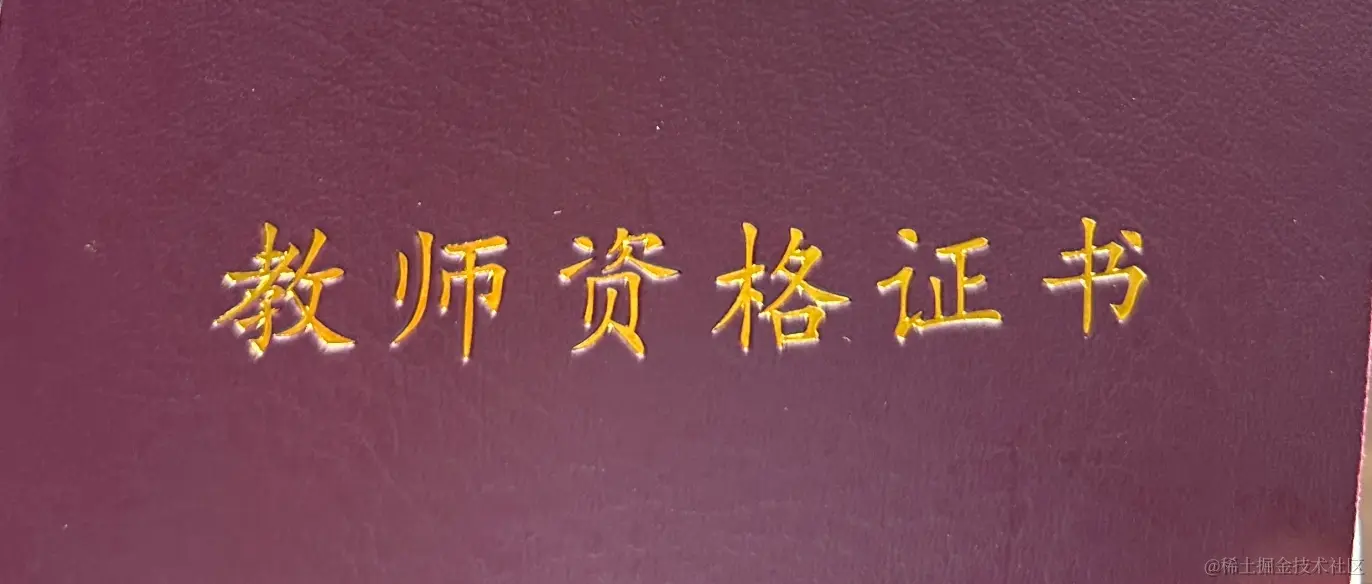 教师资格证书
@稀土掘金技术社区